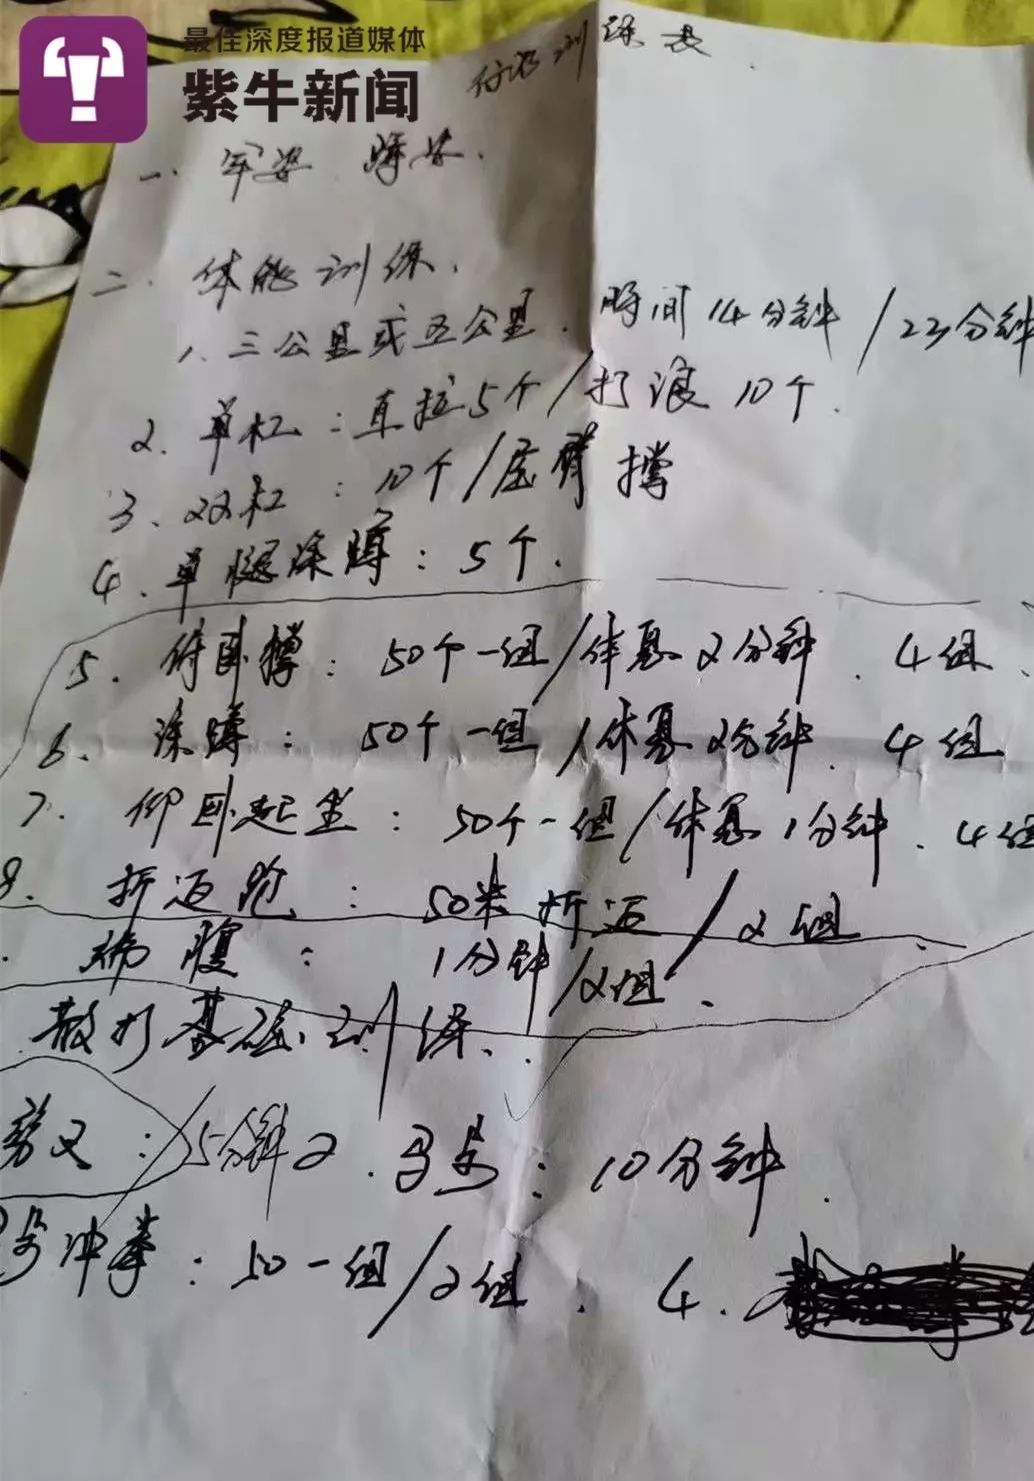 最佳深度报道媒体
紫牛新闻
训练表
一. 军姿 蹲姿.
二. 体能训练.
1. 三公里或五公里. 时间14分钟/23分钟
2. 单杠:直拉5个/打浪10个.
3、双杠:10个/屈臂撑
4. 单腿深蹲:5个.
5. 俯卧撑:50个一组/休息2分钟. 4组、
6、深蹲:50个一组/休息2分钟. 4组
7. 仰卧起坐:50个一组/休息1分钟. 4组
8. 折返跑:50米折返/2组.
腹:1分钟/2组.
散打基础训练.
劈叉:/5分钟 2. 马步:10分钟.
步冲拳:50一组/2组. 4.